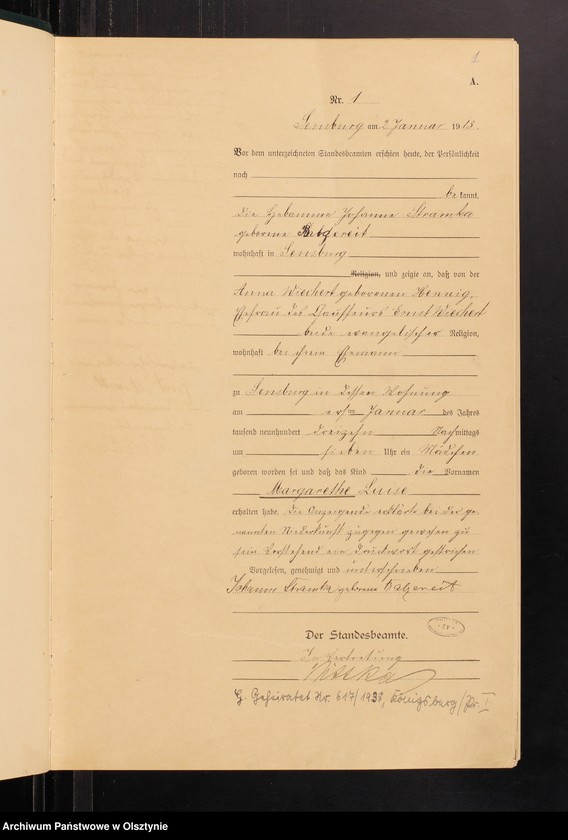 1
A.
Nr. 1
Sensburg am 2 Januar 1913.
Vor dem unterzeichneten Standesbeamten erschien heute, der Persönlichkeit
nach
be kannt,
die Hebamme Johanne Stramka
geborene
wohnhaft in Sensburg
Religion, und zeigte an, daß von der
Anna Wiechert geborenen Hennig,
Ehefrau des Chauffeurs Ernst Wiechert
beide evangelischer Religion,
wohnhaft bei ihrem Ehemann
zu Sensburg in dessen Wohnung
am ersten Januar des Jahres
tausend neunhundert dreizehn Nachmittags
um sieben Uhr ein Mädchen
geboren worden sei und daß das Kind die Vornamen
Margarethe Luise
erhalten habe. Die Anzeigende erklärte bei der ge-
nannten Niederkunft zugegen gewesen zu
sein Vorstehend ein Druckwort gestrichen
Vorgelesen, genehmigt und unterschrieben
Johanne Stramka geborene Balzereit
Der Standesbeamte.
In Vertretung
G. Geheiratet Nr. 617/1936, Königsberg/Pr. I
Archiwum Państwowe w Olsztynie